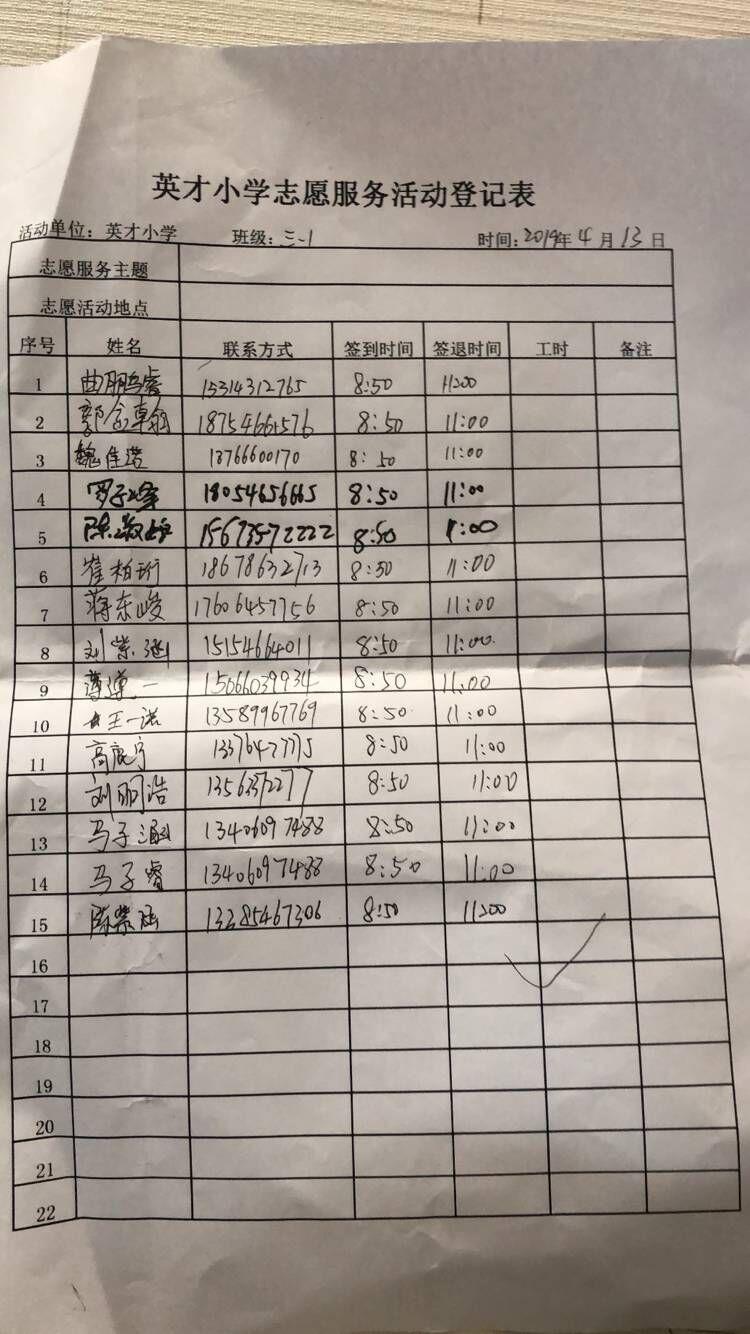 英才小学志愿服务活动登记表
活动单位：英才小学 班级：三-1 时间：2019年4月13日
志愿服务主题
志愿活动地点
序号 姓名 联系方式 签到时间 签退时间 工时 备注
1 曲鹏睿 15314312765 8:50 11:00
2 18754661576 8:50 11:00
3 魏佳浩 13766600170 8:50 11:00
4 罗子峰 18054656665 8:50 11:00
5 8:50 11:00
6 崔柏珩 18678632713 8:50 11:00
7 蒋东峻 17606457756 8:50 11:00
8 刘紫涵 15154664011 8:50 11:00
9 15066039934 8:50 11:00
10 王一诺 13589967769 8:50 11:00
11 8:50 11:00
12 8:50 11:00
13 马子涵 13406097488 8:50 11:00
14 马子睿 13406097488 8:50 11:00
15 陈紫涵 13285467306 8:50 11:00
16
17
18
19
20
21
22